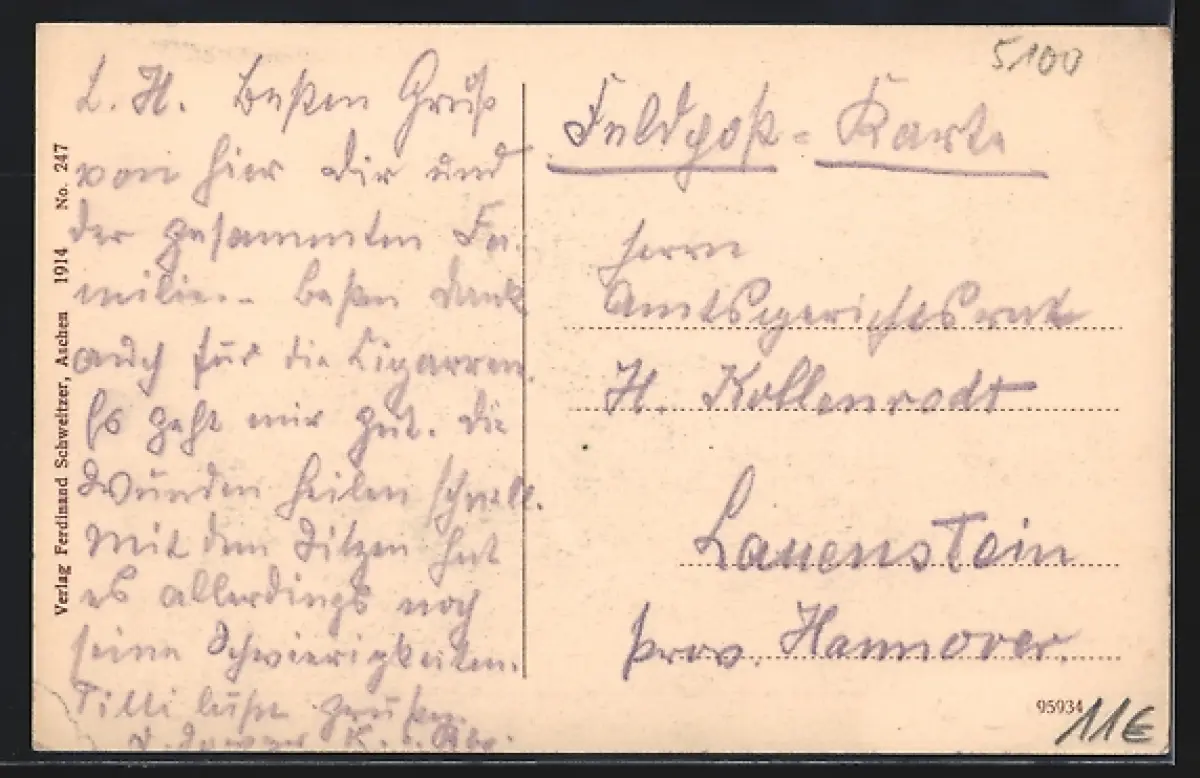 L. H. Besten Gruß
von hier Dir und
der gesammten Fa-
milie. - Besten Dank
auch für die Cigarren.
Es geht mir gut. Die
Wunden heilen schnell.
Mit dem Sitzen hat
es allerdings noch
seine Schwierigkeiten.
Tilli läßt grüßen.
Feldpost - Karte
Herrn
Amtsgerichtsrat
H. Kollenrodt
Lauenstein
Prov. Hannover.
Verlag Ferdinand Schweitzer, Aachen 1914 No. 247
5100
95934
11€